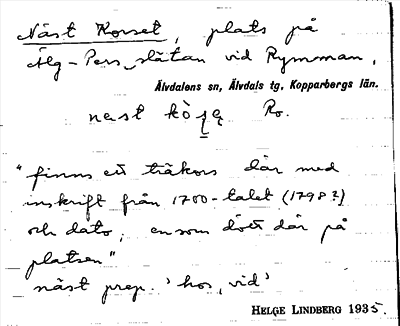 Näst Korset, plats på
Älg-Pers slåtan vid Rymman,
Älvdalens sn, Älvdals tg, Kopparbergs län.
nest Ro.
"finns ett träkors där med
inskrift från 1700-talet (1798?)
och dato, en som dött där på
platsen"
näst prep. 'hos, vid'
HELGE LINDBERG 1935.